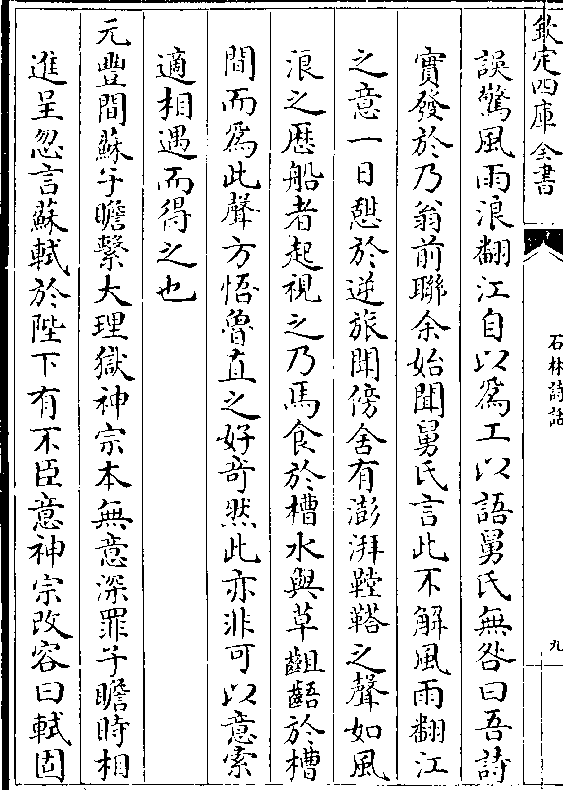 欽定四庫全書
石林詩話
九
誤驚風雨浪翻江自以為工以語舅氏無咎曰吾詩
實發於乃翁前聯余始聞舅氏言此不解風雨翻江
之意一日憇於逆旅聞傍舍有澎湃鞺鞳之聲如風
浪之歴船者起視之乃馬食於槽水與草齟齬於槽
間而為此聲方悟魯直之好奇然此亦非可以意索
適相遇而得之也
元豐間蘇子瞻繫大理獄神宗本無意深罪子瞻時相
進呈忽言蘇軾於陛下有不臣意神宗改容曰軾固